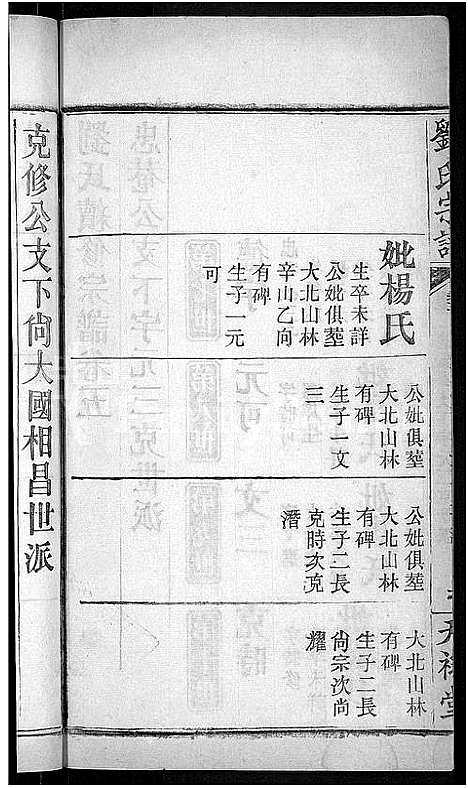 劉氏宗譜
妣楊氏
生卒未詳
公妣俱塟
大北山林
辛山乙向
有碑
生子一元
可
公妣俱塟
大北山林
有碑
生子一文
三
公妣俱塟
大北山林
有碑
生子二長
克時次克
潛
大北山林
有碑
生子二長
尙宗次尙
耀
克修公支下尙大國相昌世派